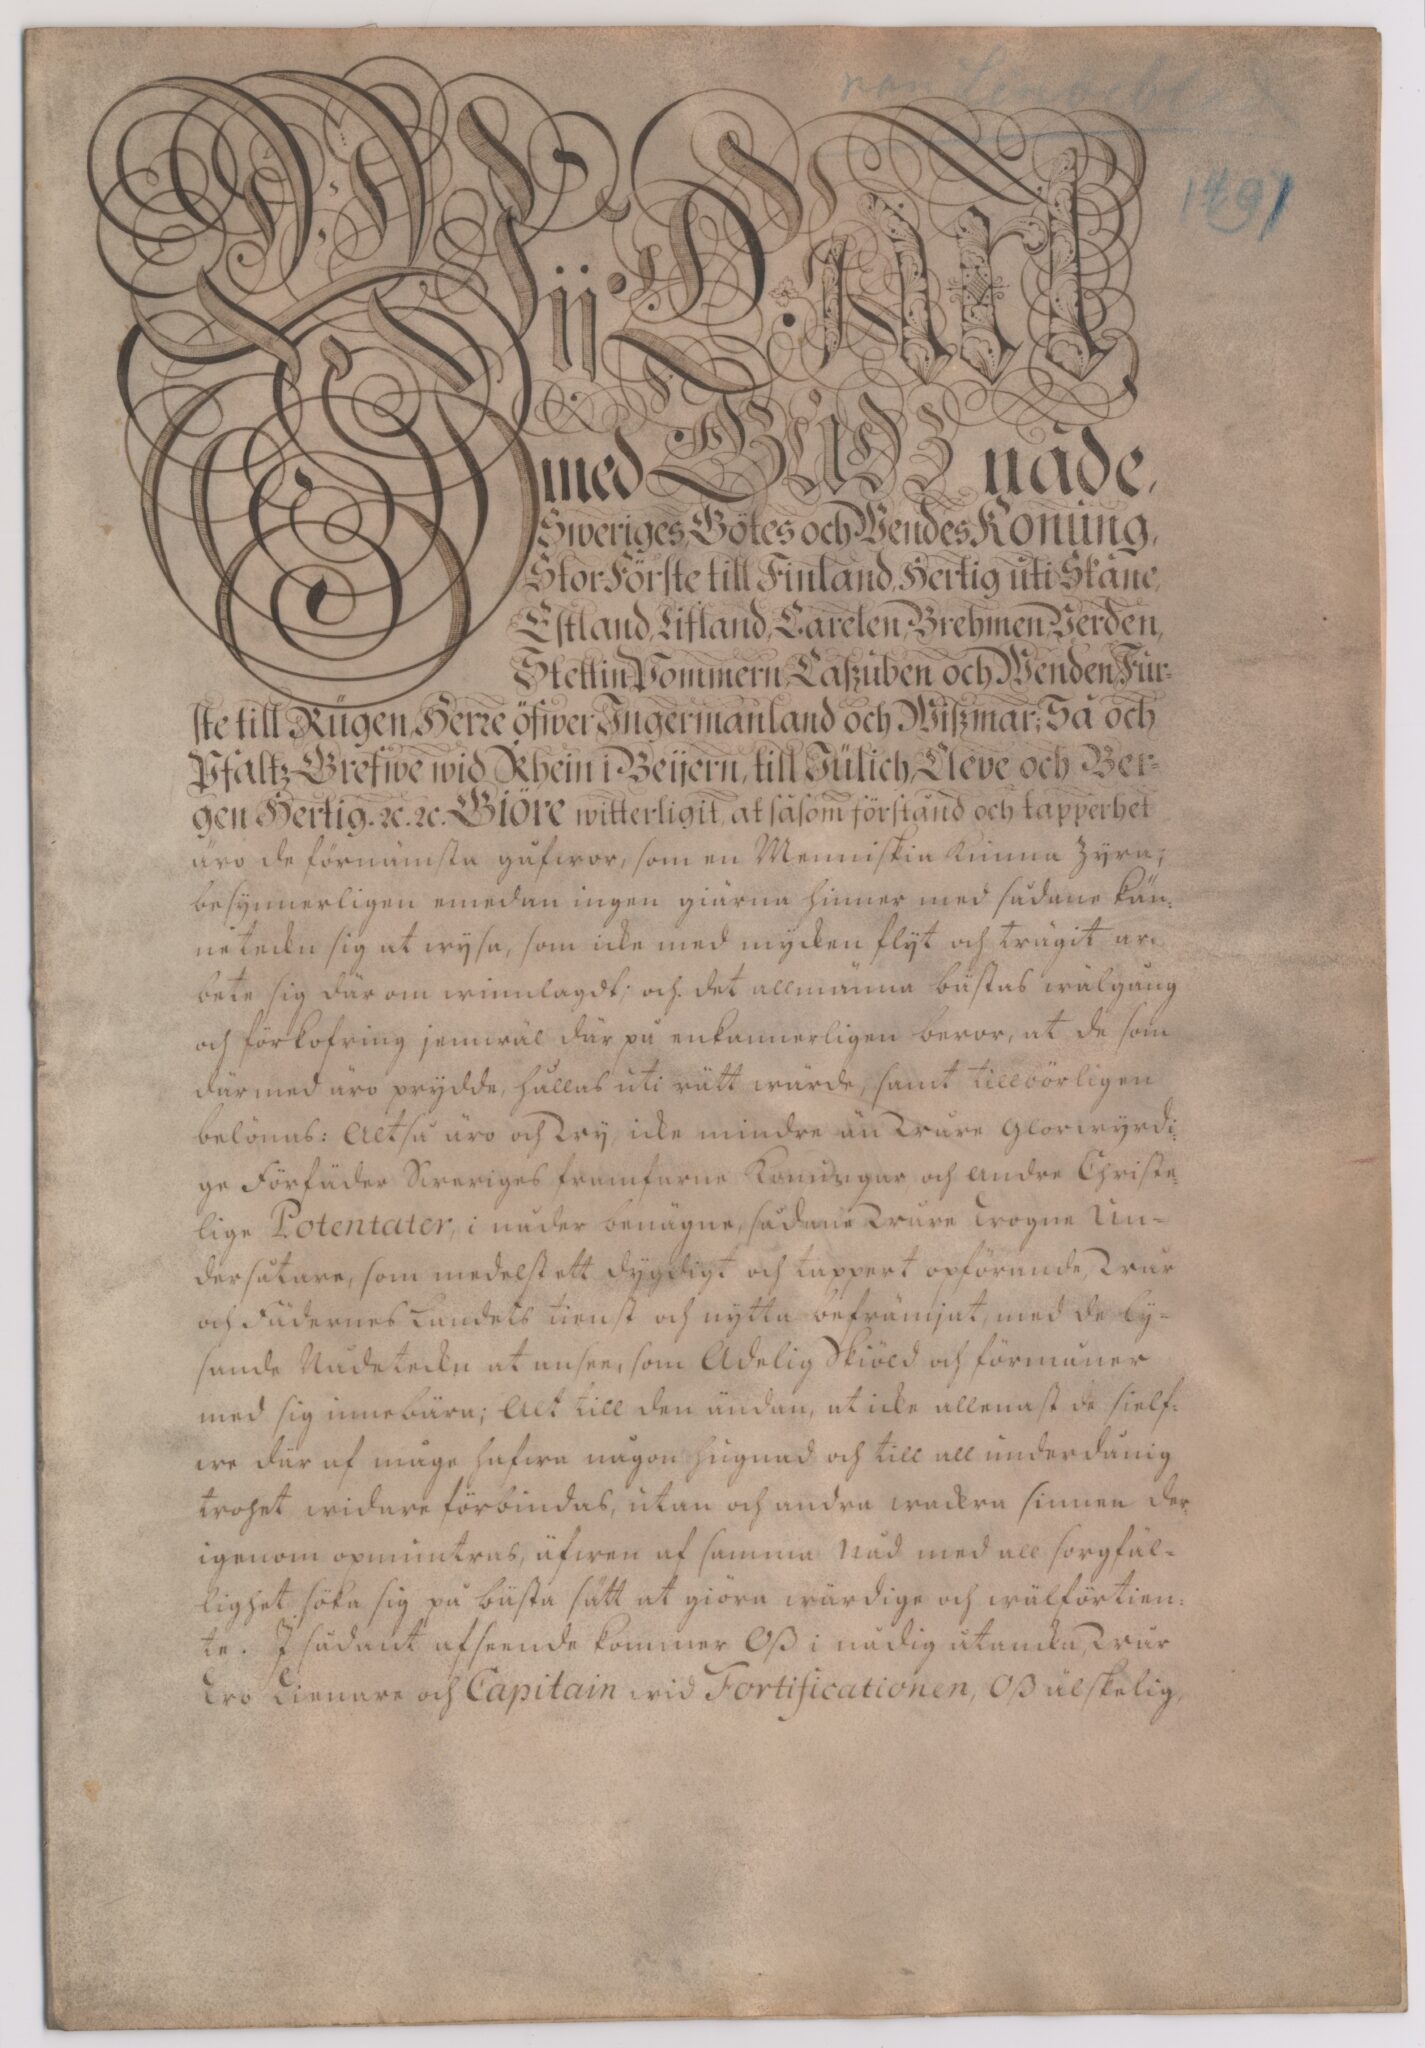 von Lindeblad
1491
Wii CARL
med GUDZ nåde,
Sweriges, Götes och Wendes Konüng,
StorFörste till Finland, Hertig üti Skåne,
Estland, Lifland, Carelen, Brehmen, Verden,
Stettin Pommern, Caszüben och Wenden, Für-
ste till Rügen, Herre öfwer Ingermanland och Wiszmar; Så och
Pfaltz-Grefwe wid Rhein i Beijern, till Jülich, Cleve och Ber-
gen Hertig. &c. &c. Giöre witterligit, at såsom förstånd och tapperhet
äro de förnämsta gåfwor, som en Menniskia kunna zyra;
besynnerligen emedan ingen giärna hinner med sådane kän-
neteckn sig at wysa, som icke med mycken flyt och trägit ar-
bete sig där om winnlagdt; och det allmänna bästas wälgång
och förkofring jemwäl där på enkannerligen beror, at de som
där med äro prydde, hållas uti rätt wärde, samt tillbörligen
belönas: Altså äro och Wy icke mindre än Wåre Glorwyrdi-
ge Förfäder Sweriges framfarne Konungar, och andre Christe-
lige Potentater, i nåder benägne, sådane Wåre Trogne Un-
dersåtare, som medelst ett dygdigt och tappert opförande, Wår
och Fädernes Landets tienst och nytta befrämjat, med de ly-
sande Nådeteckn at ansee, som Adelig Skiöld och förmåner
med sig innebära; Alt till den ändan, at icke allenast de sielf-
we där af måge hafwa någon hugnad och till all underdånig
trohet widare förbindas, utan och andra wackra sinnen der-
igenom opmuntras, äfwen af samma Nåd med all sorgfäl-
lighet söka sig på bästa sätt at giöra wärdige och wälförtien-
te. I sådant afseende kommer Oß i nådig åtancka, Wår
Tro Tienare och Capitain wid Fortificationen, Oß älskelig,